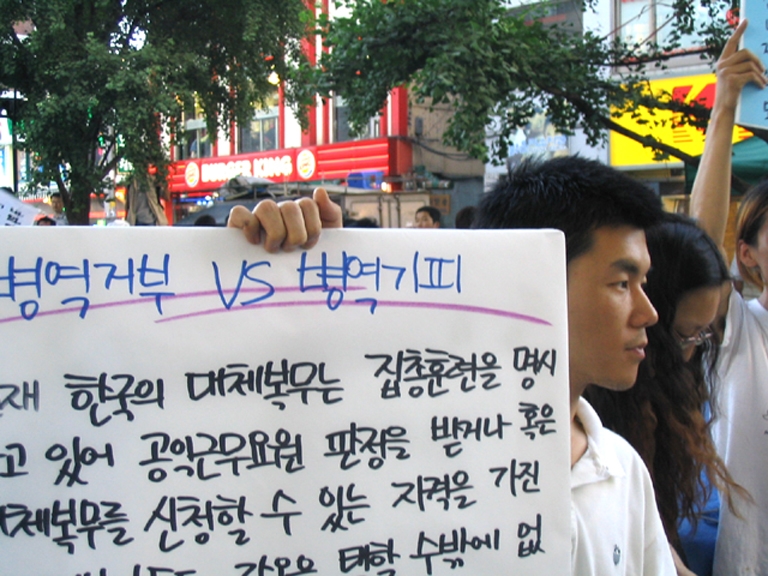 BURGER KING
병역거부 VS 병역기피
재 한국의 대체복무는 집총훈련을 명시
고 있어 공익근무요원 판정을 받거나 혹은
체복무를 신청할 수 있는 자격을 가진
택할 수밖에 없